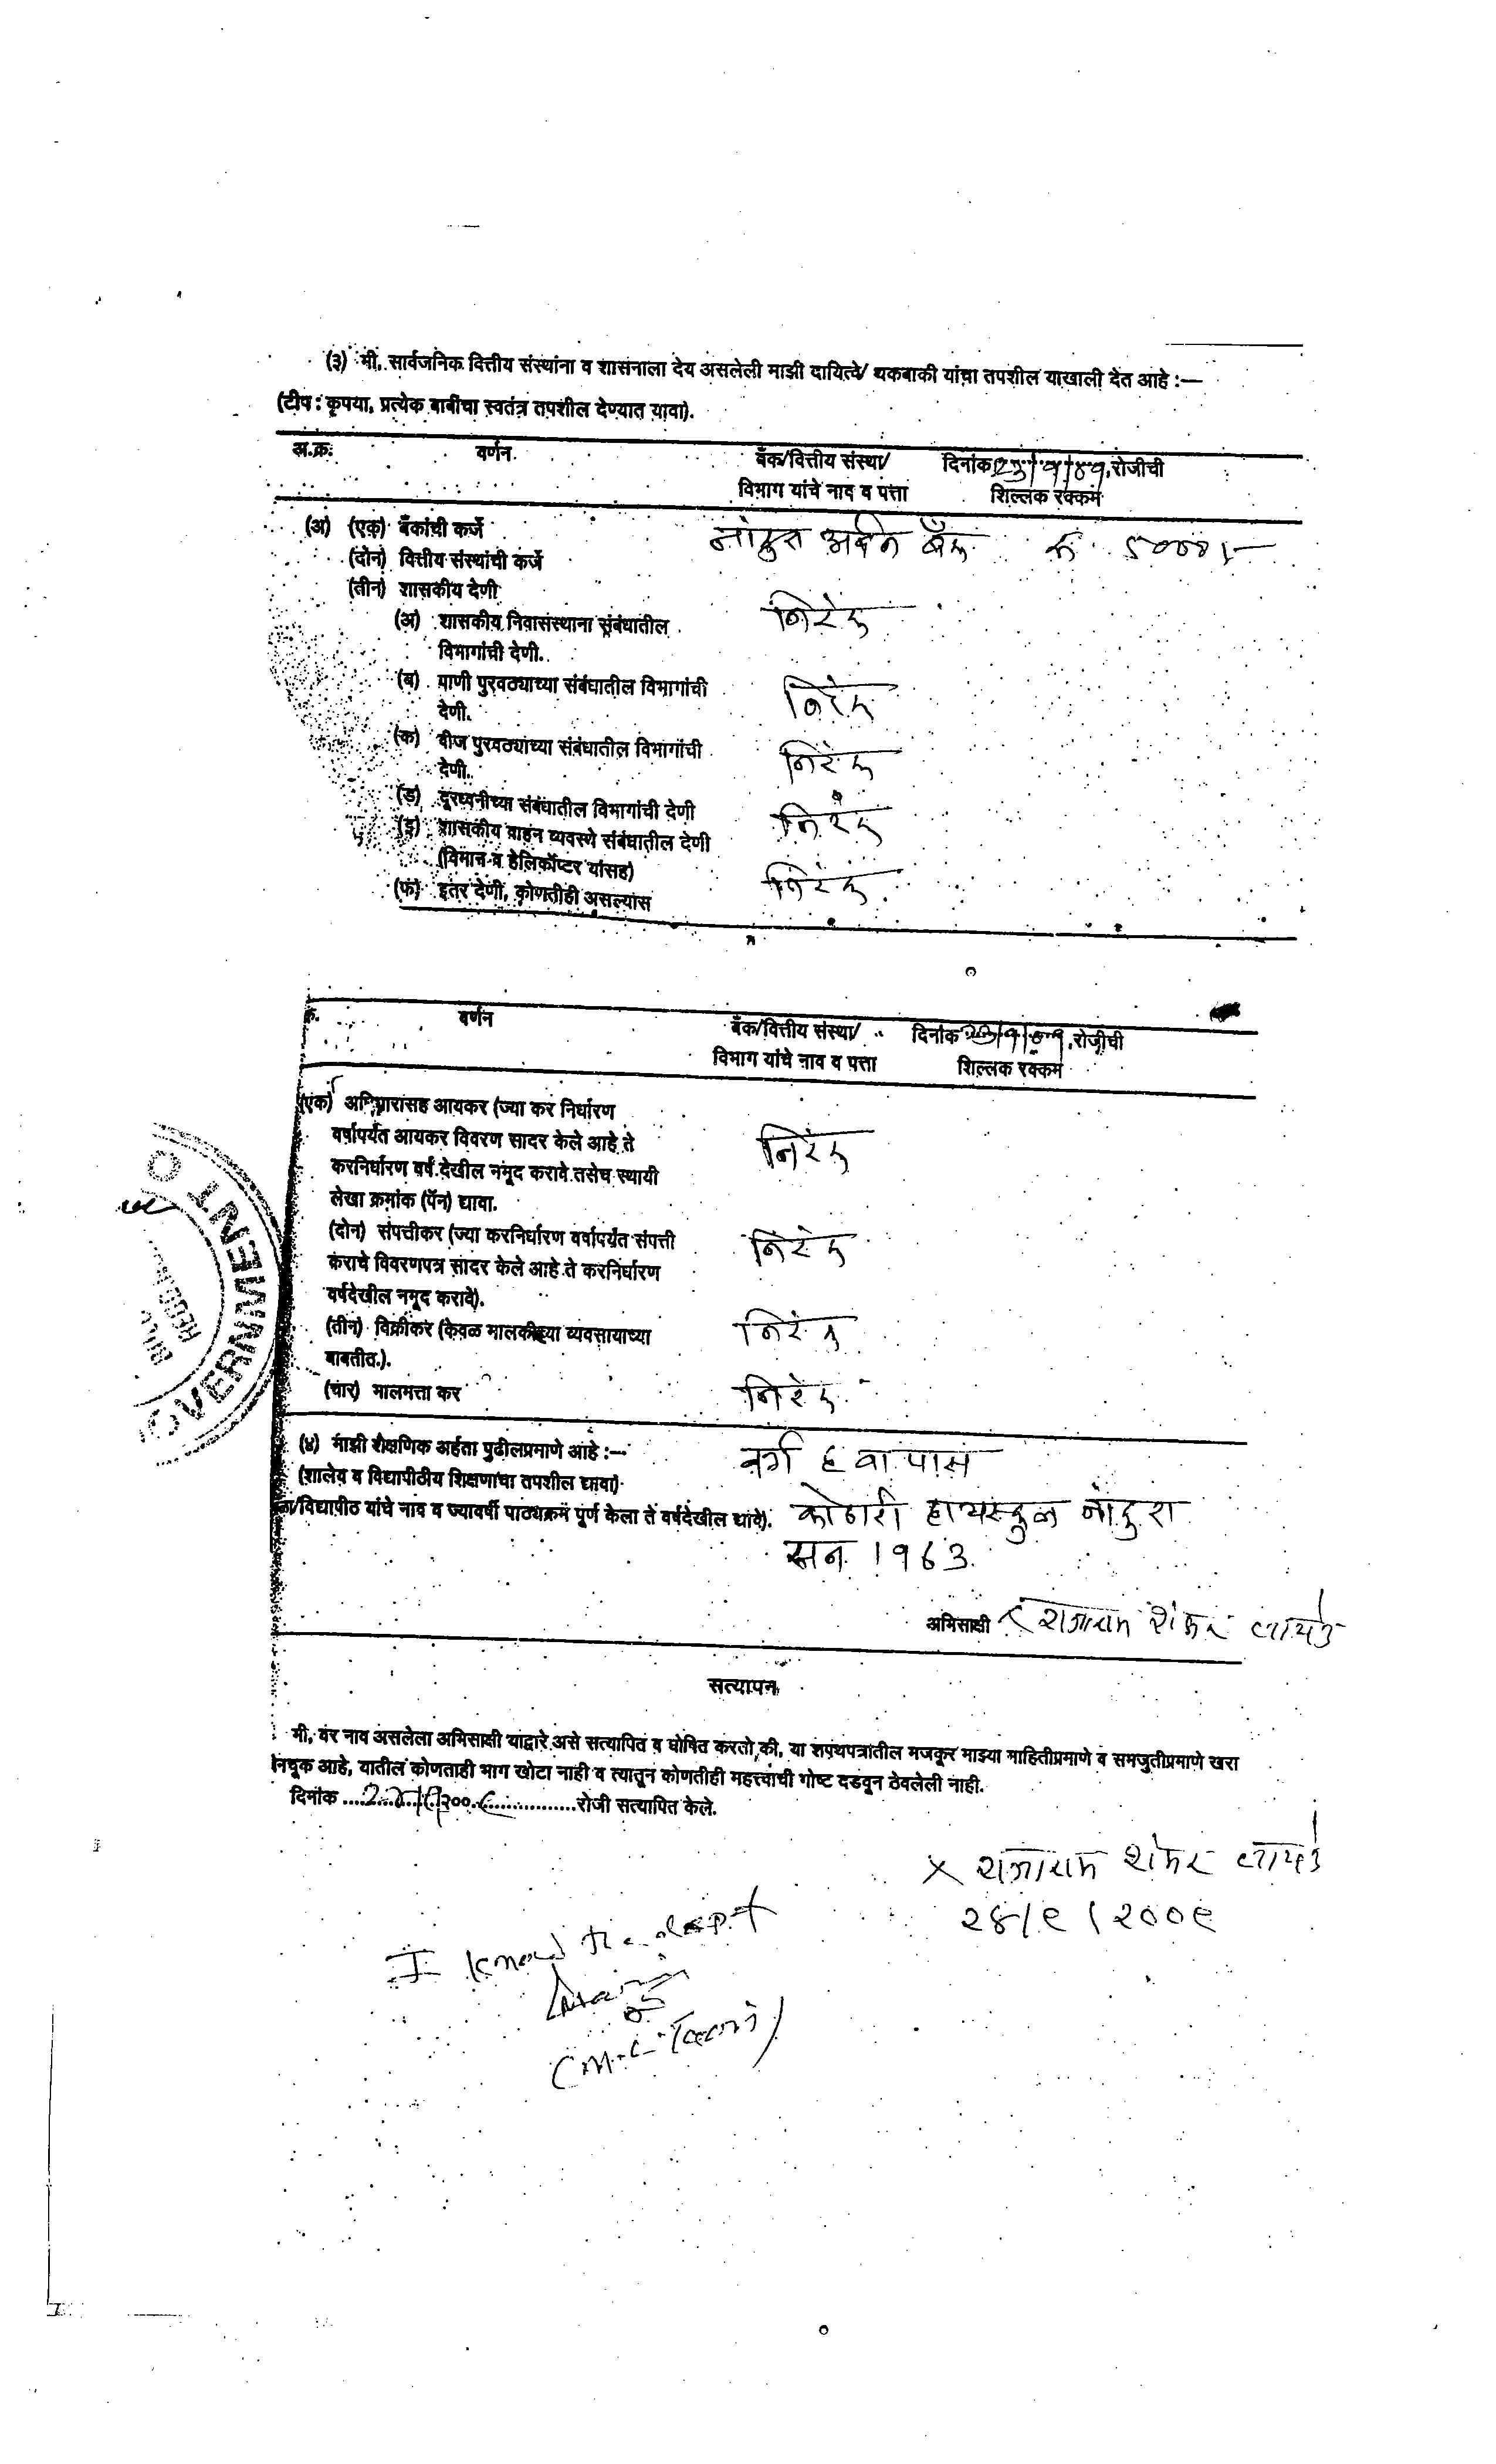 (३) मी, सार्वजनिक वित्तीय संस्थांना व शासनाला देय असलेली माझी दायित्वे/ थकबाकी यांचा तपशील याखाली देत आहे :—
(टीप : कृपया, प्रत्येक बाबींचा स्वतंत्र तपशील देण्यात यावा).
अ.क्र. वर्णन बँक/वित्तीय संस्था/ दिनांक रोजीची
विभाग यांचे नाव व पत्ता शिल्लक रक्कम
(अ) (एक) बँकांची कर्जे नांदुरा अर्बन बँक
(दोन) वित्तीय संस्थांची कर्जे
(तीन) शासकीय देणी
(अ) शासकीय निवासस्थाना संबंधातील निरंक
विभागांची देणी.
(ब) पाणी पुरवठ्याच्या संबंधातील विभागांची निरंक
देणी.
(क) वीज पुरवठ्याच्या संबंधातील विभागांची निरंक
देणी.
(ड) दूरध्वनीच्या संबंधातील विभागांची देणी निरंक
(इ) शासकीय वाहन व्यवस्थे संबंधातील देणी
(विमान व हेलिकॉप्टर यांसह) निरंक
(फ) इतर देणी, कोणतीही असल्यास
क्र. वर्णन बँक/वित्तीय संस्था/ दिनांक रोजीची
विभाग यांचे नाव व पत्ता शिल्लक रक्कम
(एक) अधिभारासह आयकर (ज्या कर निर्धारण
वर्षापर्यंत आयकर विवरण सादर केले आहे ते निरंक
करनिर्धारण वर्ष देखील नमूद करावे तसेच स्थायी
लेखा क्रमांक (पॅन) द्यावा.
(दोन) संपत्तीकर (ज्या करनिर्धारण वर्षापर्यंत संपत्ती निरंक
कराचे विवरणपत्र सादर केले आहे ते करनिर्धारण
वर्षदेखील नमूद करावे).
(तीन) विक्रीकर (केवळ मालकीच्या व्यवसायाच्या निरंक
बाबतीत.).
(चार) मालमत्ता कर निरंक
(४) माझी शैक्षणिक अर्हता पुढीलप्रमाणे आहे :— वर्ग ६ वा पास
(शालेय व विद्यापीठीय शिक्षणाचा तपशील द्यावा)
/विद्यापीठ यांचे नाव व ज्यावर्षी पाठ्यक्रम पूर्ण केला ते वर्षदेखील द्यावे). कोठारी हायस्कुल नांदुरा
सन 1963
अभिसाक्षी राजाराम शंकर
सत्यापन
मी, वर नाव असलेला अभिसाक्षी याद्वारे असे सत्यापित व घोषित करतो की, या शपथपत्रातील मजकूर माझ्या माहितीप्रमाणे व समजुतीप्रमाणे खरा
निचूक आहे, यातील कोणताही भाग खोटा नाही व त्यातून कोणतीही महत्त्वाची गोष्ट दडवून ठेवलेली नाही.
दिनांक रोजी सत्यापित केले.
x राजाराम शंकर
२४/९/२००९
I know the dept
GOVERNMENT O